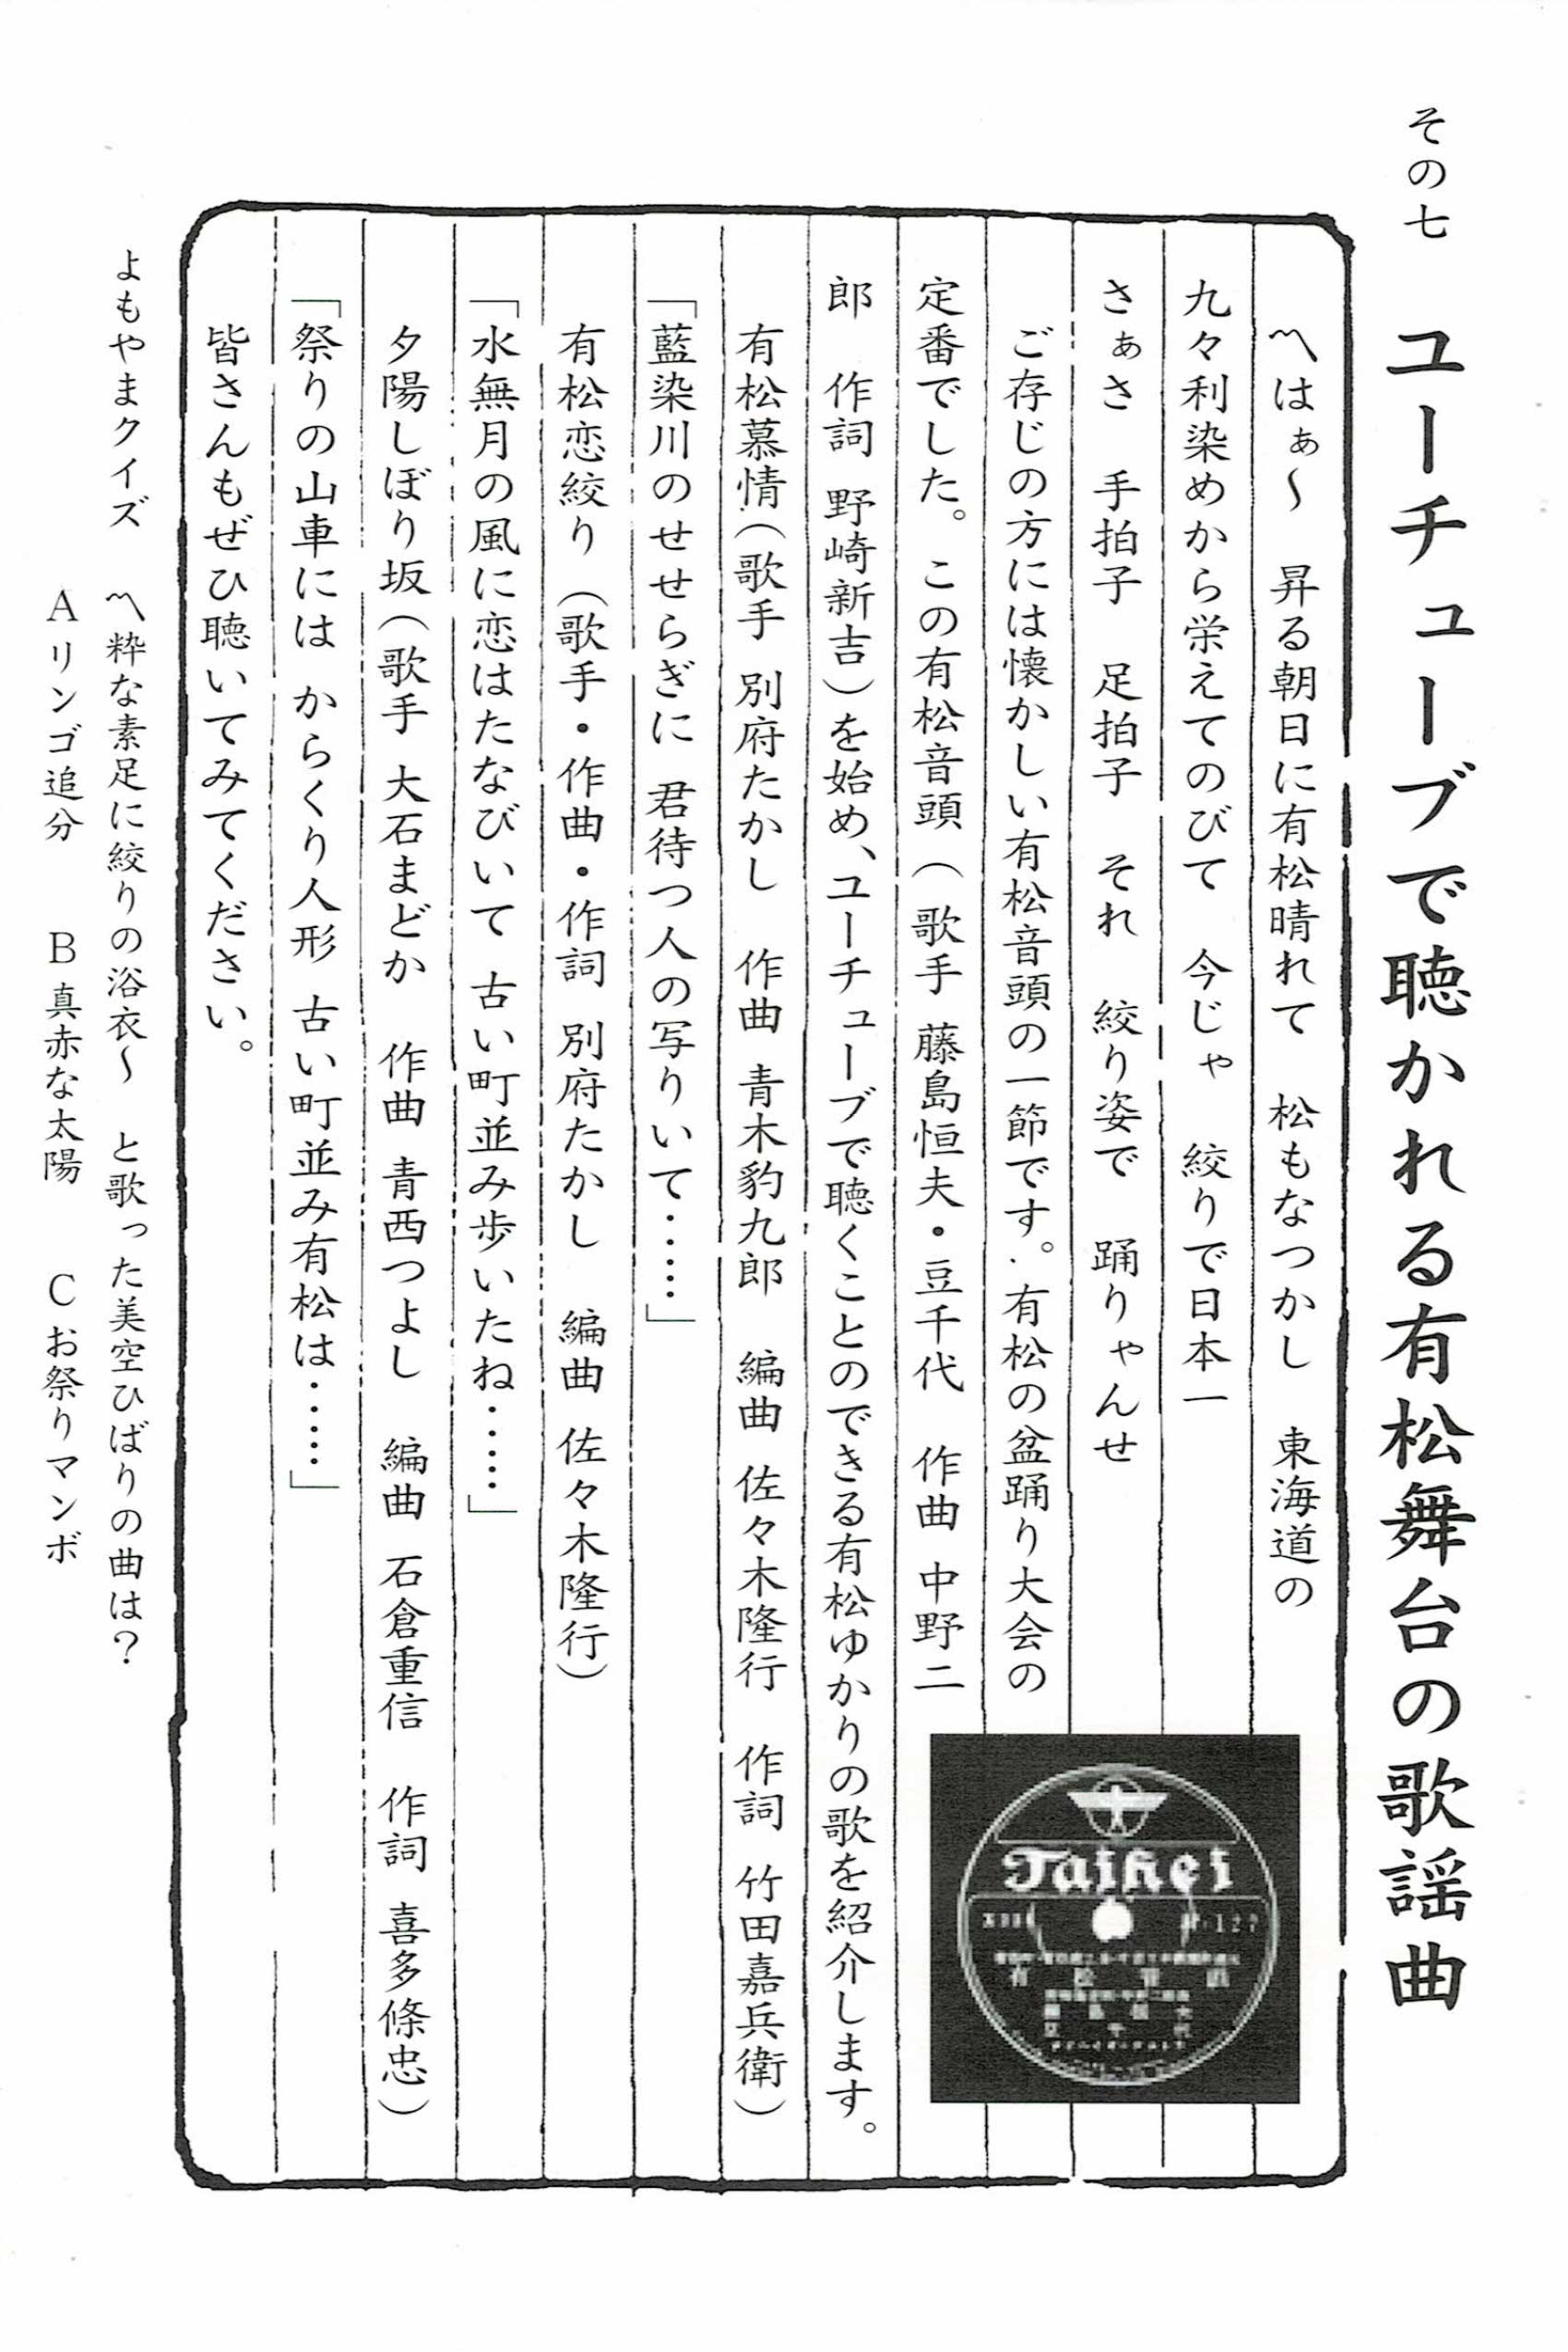 その七 ユーチューブで聴かれる有松舞台の歌謡曲
〽はぁ〜 昇る朝日に有松晴れて 松もなつかし 東海道の
九々利染めから栄えてのびて 今じゃ 絞りで日本一
さぁさ 手拍子 足拍子 それ 絞り姿で 踊りゃんせ
ご存じの方には懐かしい有松音頭の一節です。有松の盆踊り大会の
定番でした。この有松音頭（歌手 藤島恒夫・豆千代 作曲 中野二
郎 作詞 野崎新吉）を始め、ユーチューブで聴くことのできる有松ゆかりの歌を紹介します。
有松慕情（歌手 別府たかし 作曲 青木豹九郎 編曲 佐々木隆行 作詞 竹田嘉兵衛）
「藍染川のせせらぎに 君待つ人の写りいて……」
有松恋絞り（歌手・作曲・作詞 別府たかし 編曲 佐々木隆行）
「水無月の風に恋はたなびいて 古い町並み歩いたね……」
夕陽しぼり坂（歌手 大石まどか 作曲 青西つよし 編曲 石倉重信 作詞 喜多條忠）
「祭りの山車には からくり人形 古い町並み有松は……」
皆さんもぜひ聴いてみてください。
Taihei
有松音頭
よもやまクイズ 〽粋な素足に絞りの浴衣〜 と歌った美空ひばりの曲は？
Aリンゴ追分 B真赤な太陽 Cお祭りマンボ